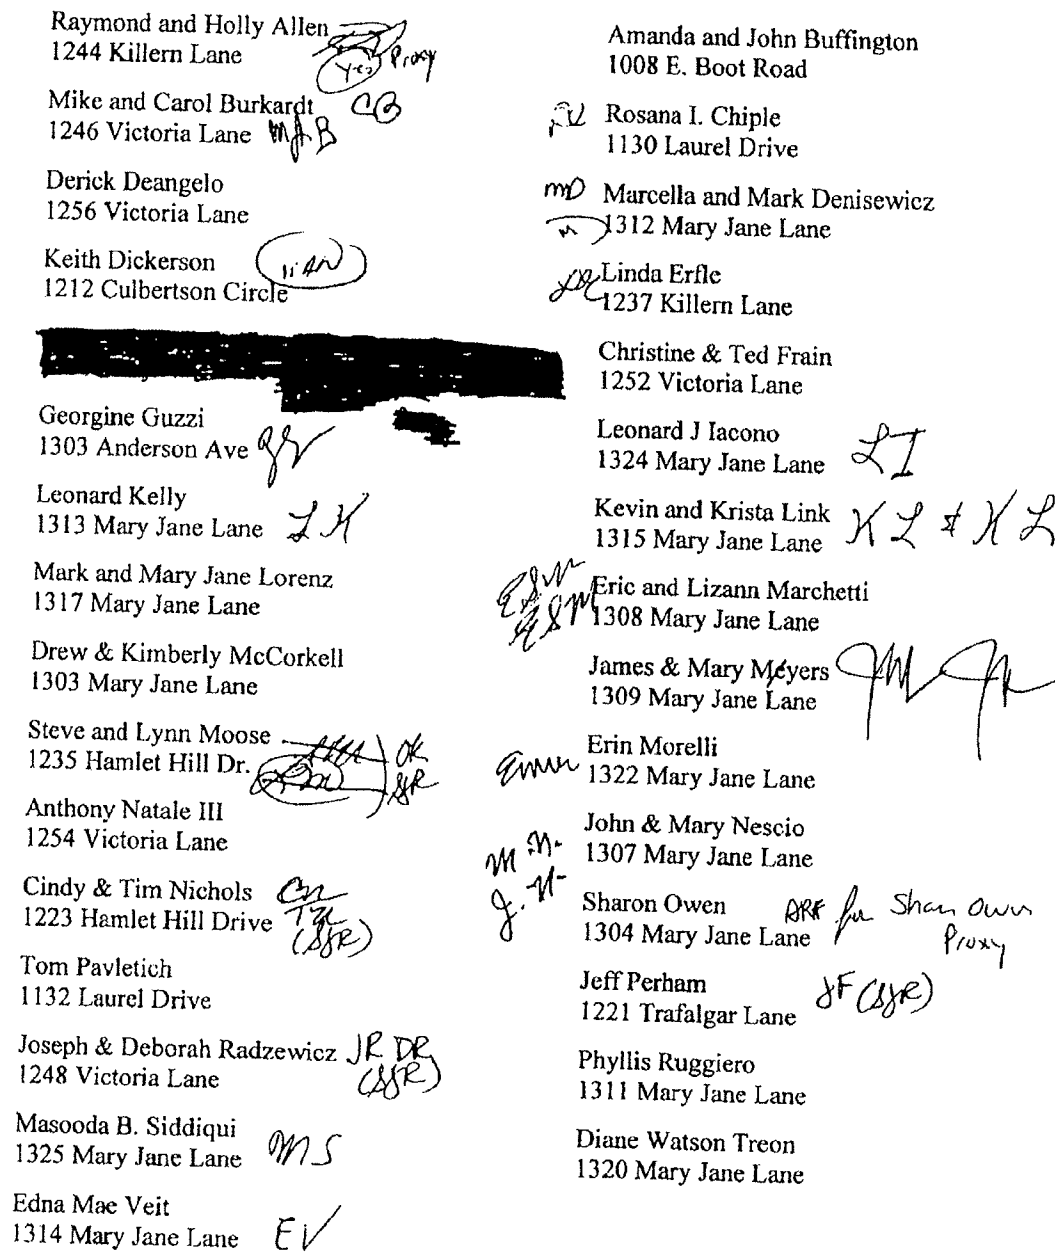 Raymond and Holly Allen
1244 Killern Lane Yes Proxy
Mike and Carol Burkardt CB
1246 Victoria Lane MAB
Derick Deangelo
1256 Victoria Lane
Keith Dickerson
1212 Culbertson Circle
Georgine Guzzi
1303 Anderson Ave
Leonard Kelly
1313 Mary Jane Lane LK
Mark and Mary Jane Lorenz
1317 Mary Jane Lane
Drew & Kimberly McCorkell
1303 Mary Jane Lane
Steve and Lynn Moose
1235 Hamlet Hill Dr. OK
SJR
Anthony Natale III
1254 Victoria Lane
Cindy & Tim Nichols CN
1223 Hamlet Hill Drive
(SJR)
Tom Pavletich
1132 Laurel Drive
Joseph & Deborah Radzewicz JR DR
1248 Victoria Lane (SJR)
Masooda B. Siddiqui
1325 Mary Jane Lane MS
Edna Mae Veit
1314 Mary Jane Lane EV
Amanda and John Buffington
1008 E. Boot Road
Rosana I. Chiple
1130 Laurel Drive
MD Marcella and Mark Denisewicz
1312 Mary Jane Lane
Linda Erfle
1237 Killern Lane
Christine & Ted Frain
1252 Victoria Lane
Leonard J Iacono
1324 Mary Jane Lane LI
Kevin and Krista Link
1315 Mary Jane Lane KL & KL
ESM Eric and Lizann Marchetti
1308 Mary Jane Lane
James & Mary Meyers JM
1309 Mary Jane Lane
Erin Morelli
1322 Mary Jane Lane
John & Mary Nescio
M.N. 1307 Mary Jane Lane
J.N. Sharon Owen for Sharon Owen
1304 Mary Jane Lane Proxy
Jeff Perham
1221 Trafalgar Lane (SJR)
Phyllis Ruggiero
1311 Mary Jane Lane
Diane Watson Treon
1320 Mary Jane Lane